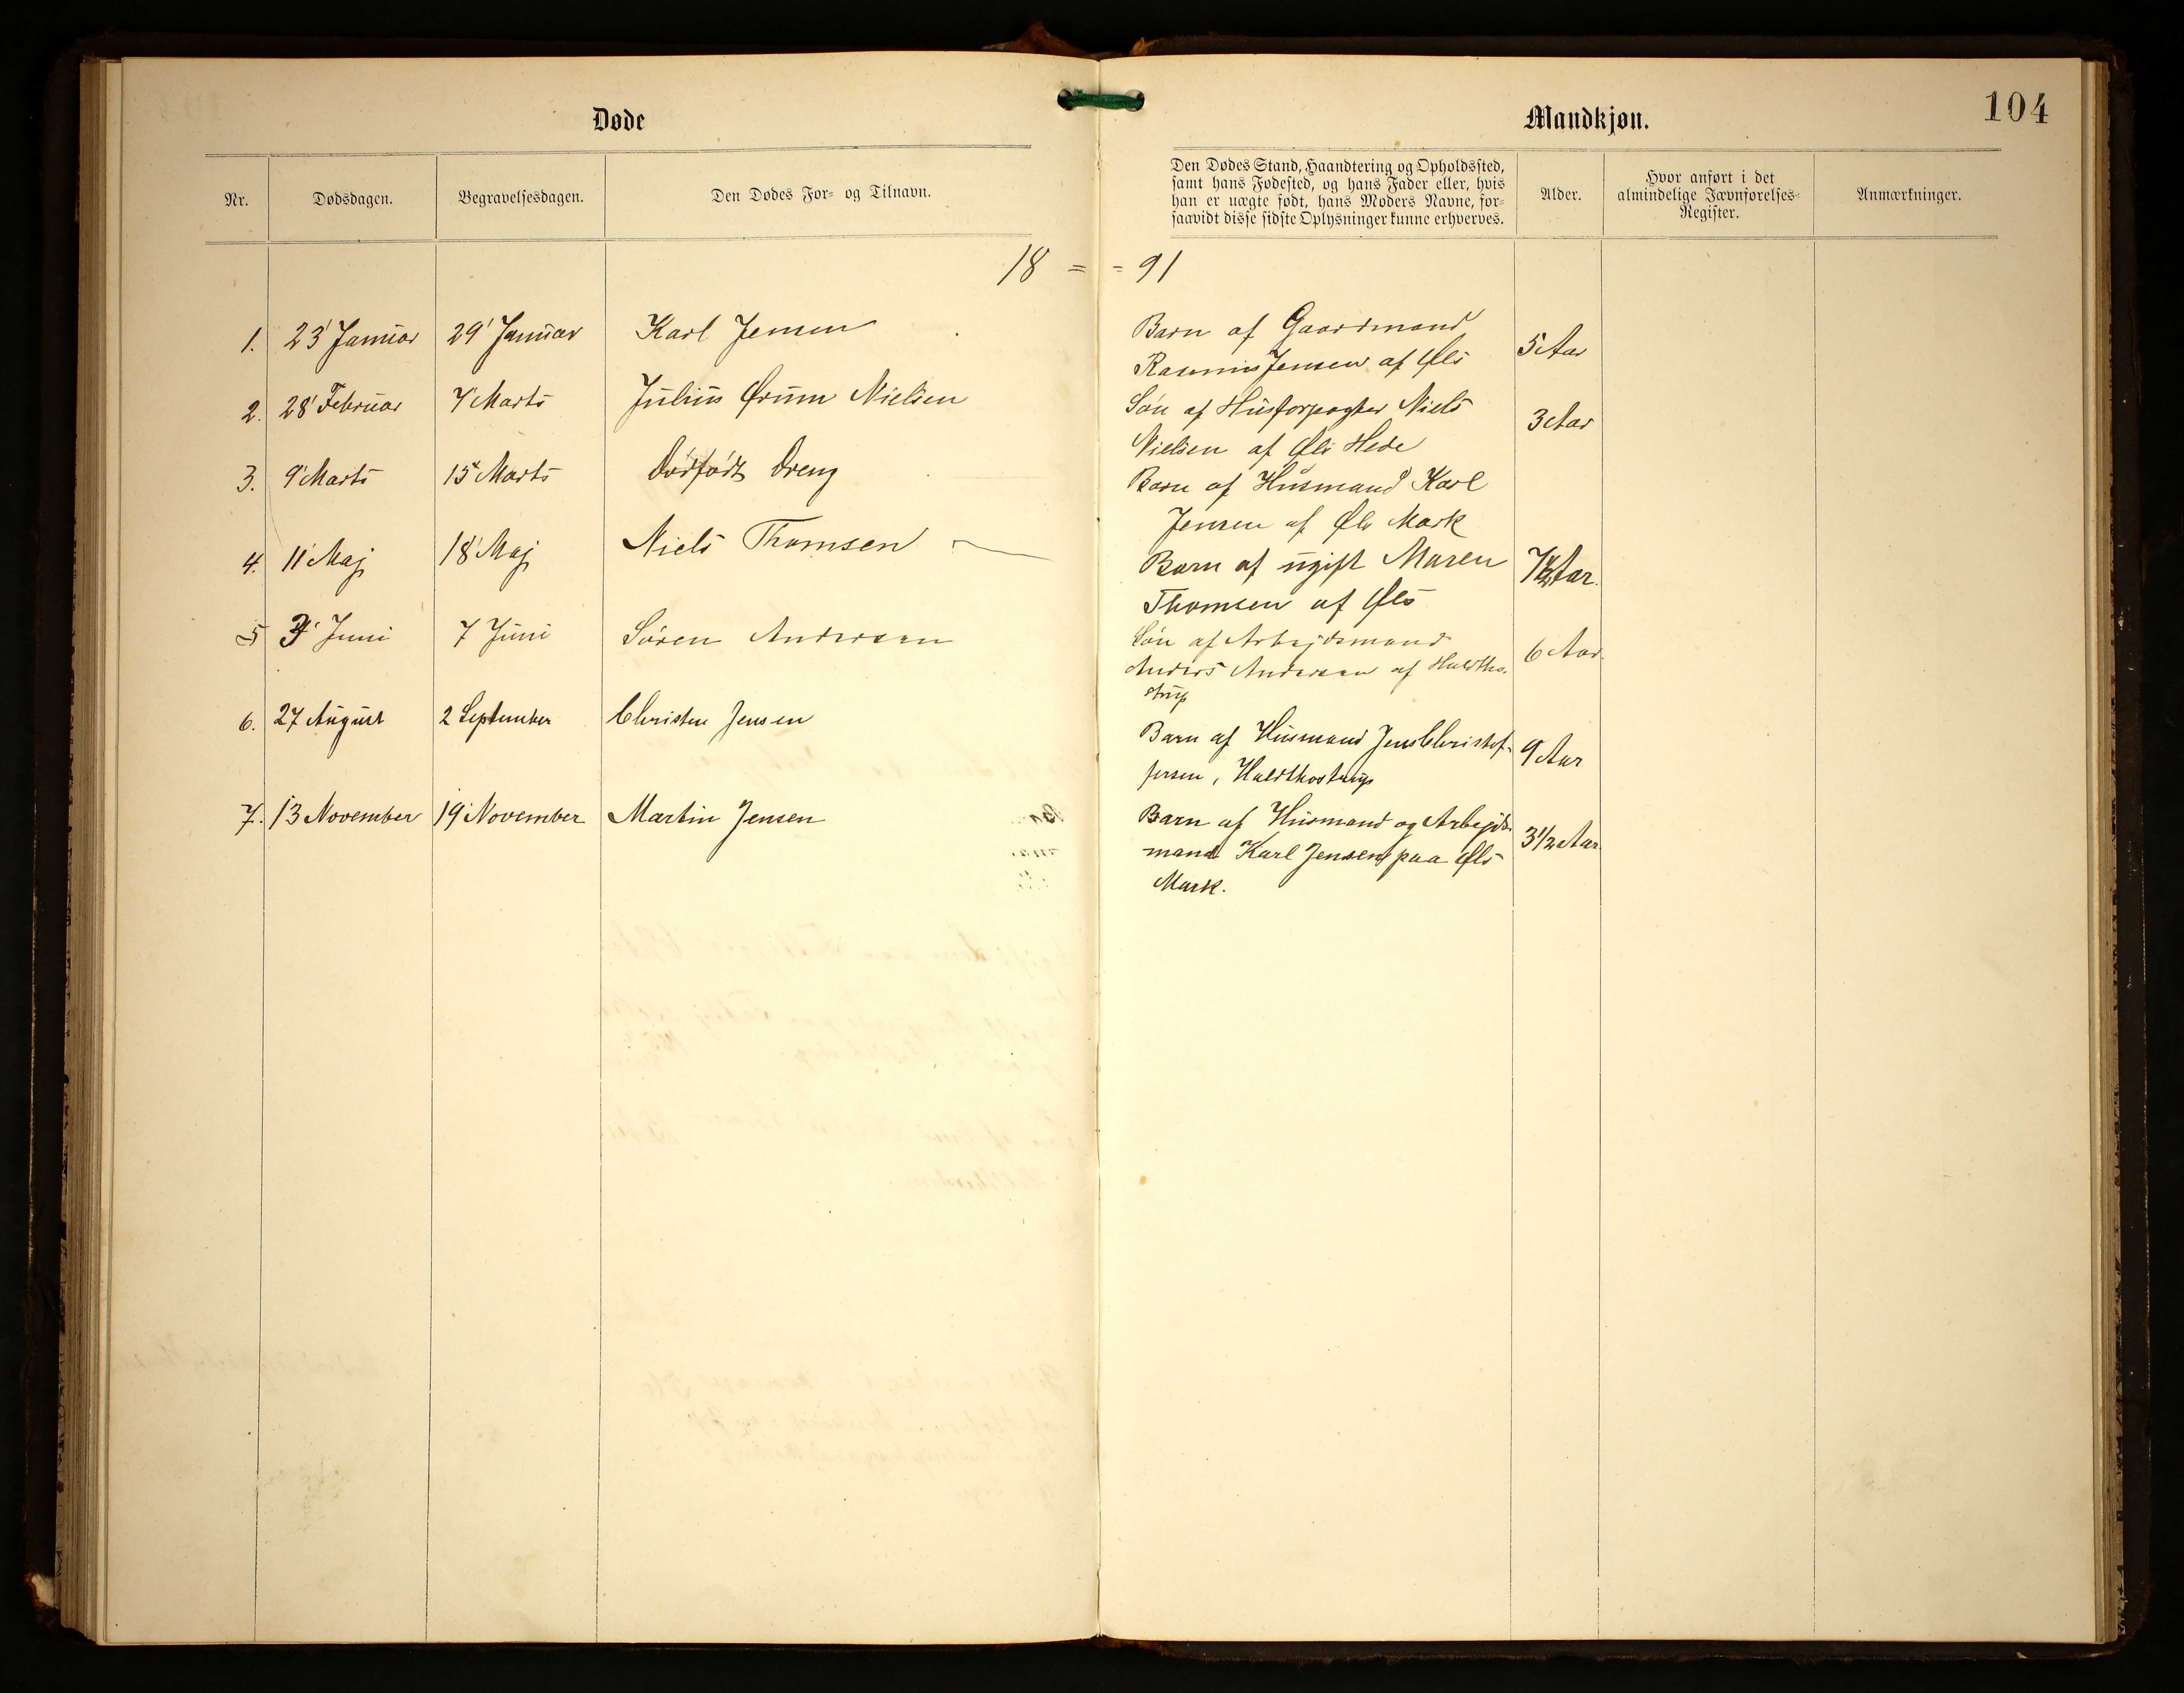 Døde
Mandkjøn.
104
Nr.
Dødsdagen.
Begravelsesdagen.
Den Dødes For- og Tilnavn.
Den Dødes Stand, Haandtering og Opholdssted,
samt hans Fødested, og hans Fader eller, hvis
han er uægte født, hans Moders Navne, for-
saavidt disse sidste Oplysninger kunne erhverves.
Alder.
Hvor anført i det
almindelige Jævnførelses-
Register.
Anmærkninger.
18 = = 91
1. 23' Januar 29' Januar Karl Jensen Barn af Gaardmand 5 Aar
Rasmus Jensen af Øls
2. 28' Februar 7' Marts Julius Ørum Nielsen Søn af Husforpagter Niels 3 Aar
Nielsen af Øls Hede
3. 9' Marts 15' Marts Dødfødt Dreng Barn af Husmand Karl
Jensen af Øls Mark
4. 11' Maj 18' Maj Niels Thomsen Barn af ugift Maren Aar.
Thomsen af Øls
5 Juni 7 Juni Søren Andersen Søn af Arbejdsmand 6 Aar.
Anders Andersen af Hvidtho-
strup
6. 27 August 2 September Christen Jensen Barn af Husmand Jens Christof- 9 Aar
fersen, Hvidthostrup
7. 13 November 19 November Martin Jensen Barn af Husmand og Arbejds- 3 1/2 Aar.
mand Karl Jensen paa Øls
Mark.